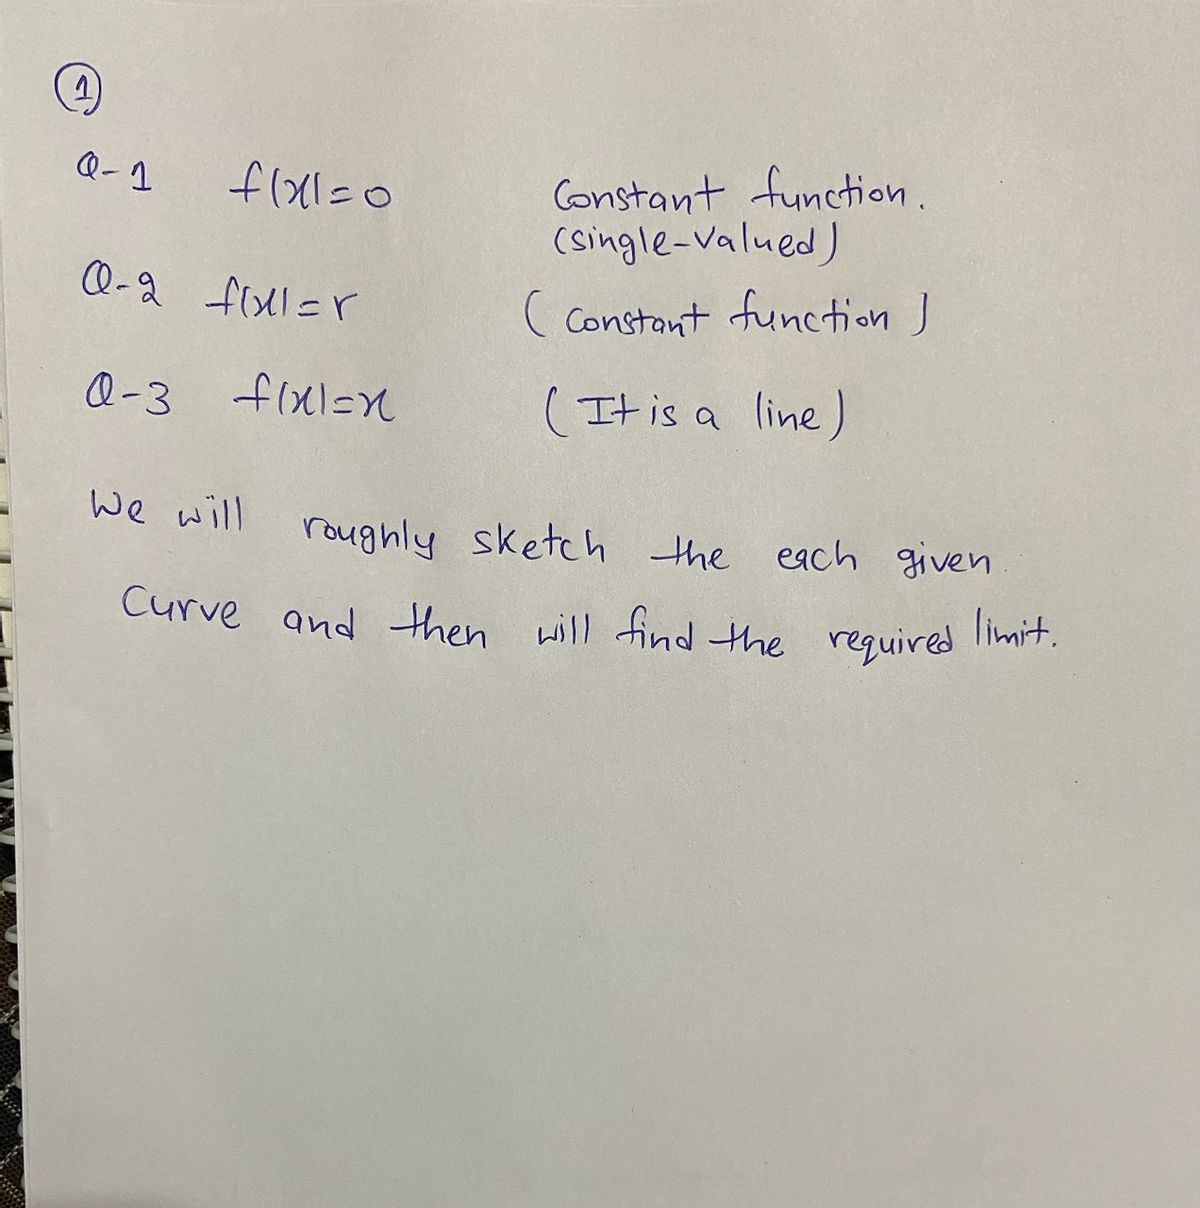 ①
Q-1 f(x)=0 Constant function.
(single-valued)
Q-2 f(x)=r (constant function)
Q-3 f(x)=x (It is a line)
We will roughly sketch the each given
Curve and then will find the required limit.